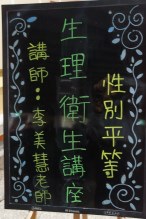 性別平等
生理衛生講座
講師：李美慧老師